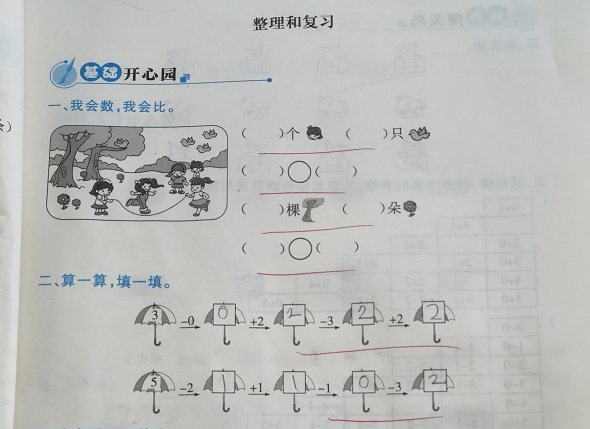 整理和复习
基础 开心园
一、我会数,我会比。
( )个 ( )只
( )○( )
( )棵 ( )朵
( )○( )
二、算一算,填一填。
3 -0 0 +2 2 -3 2 +2 2
5 -2 1 +1 1 -1 0 -3 2